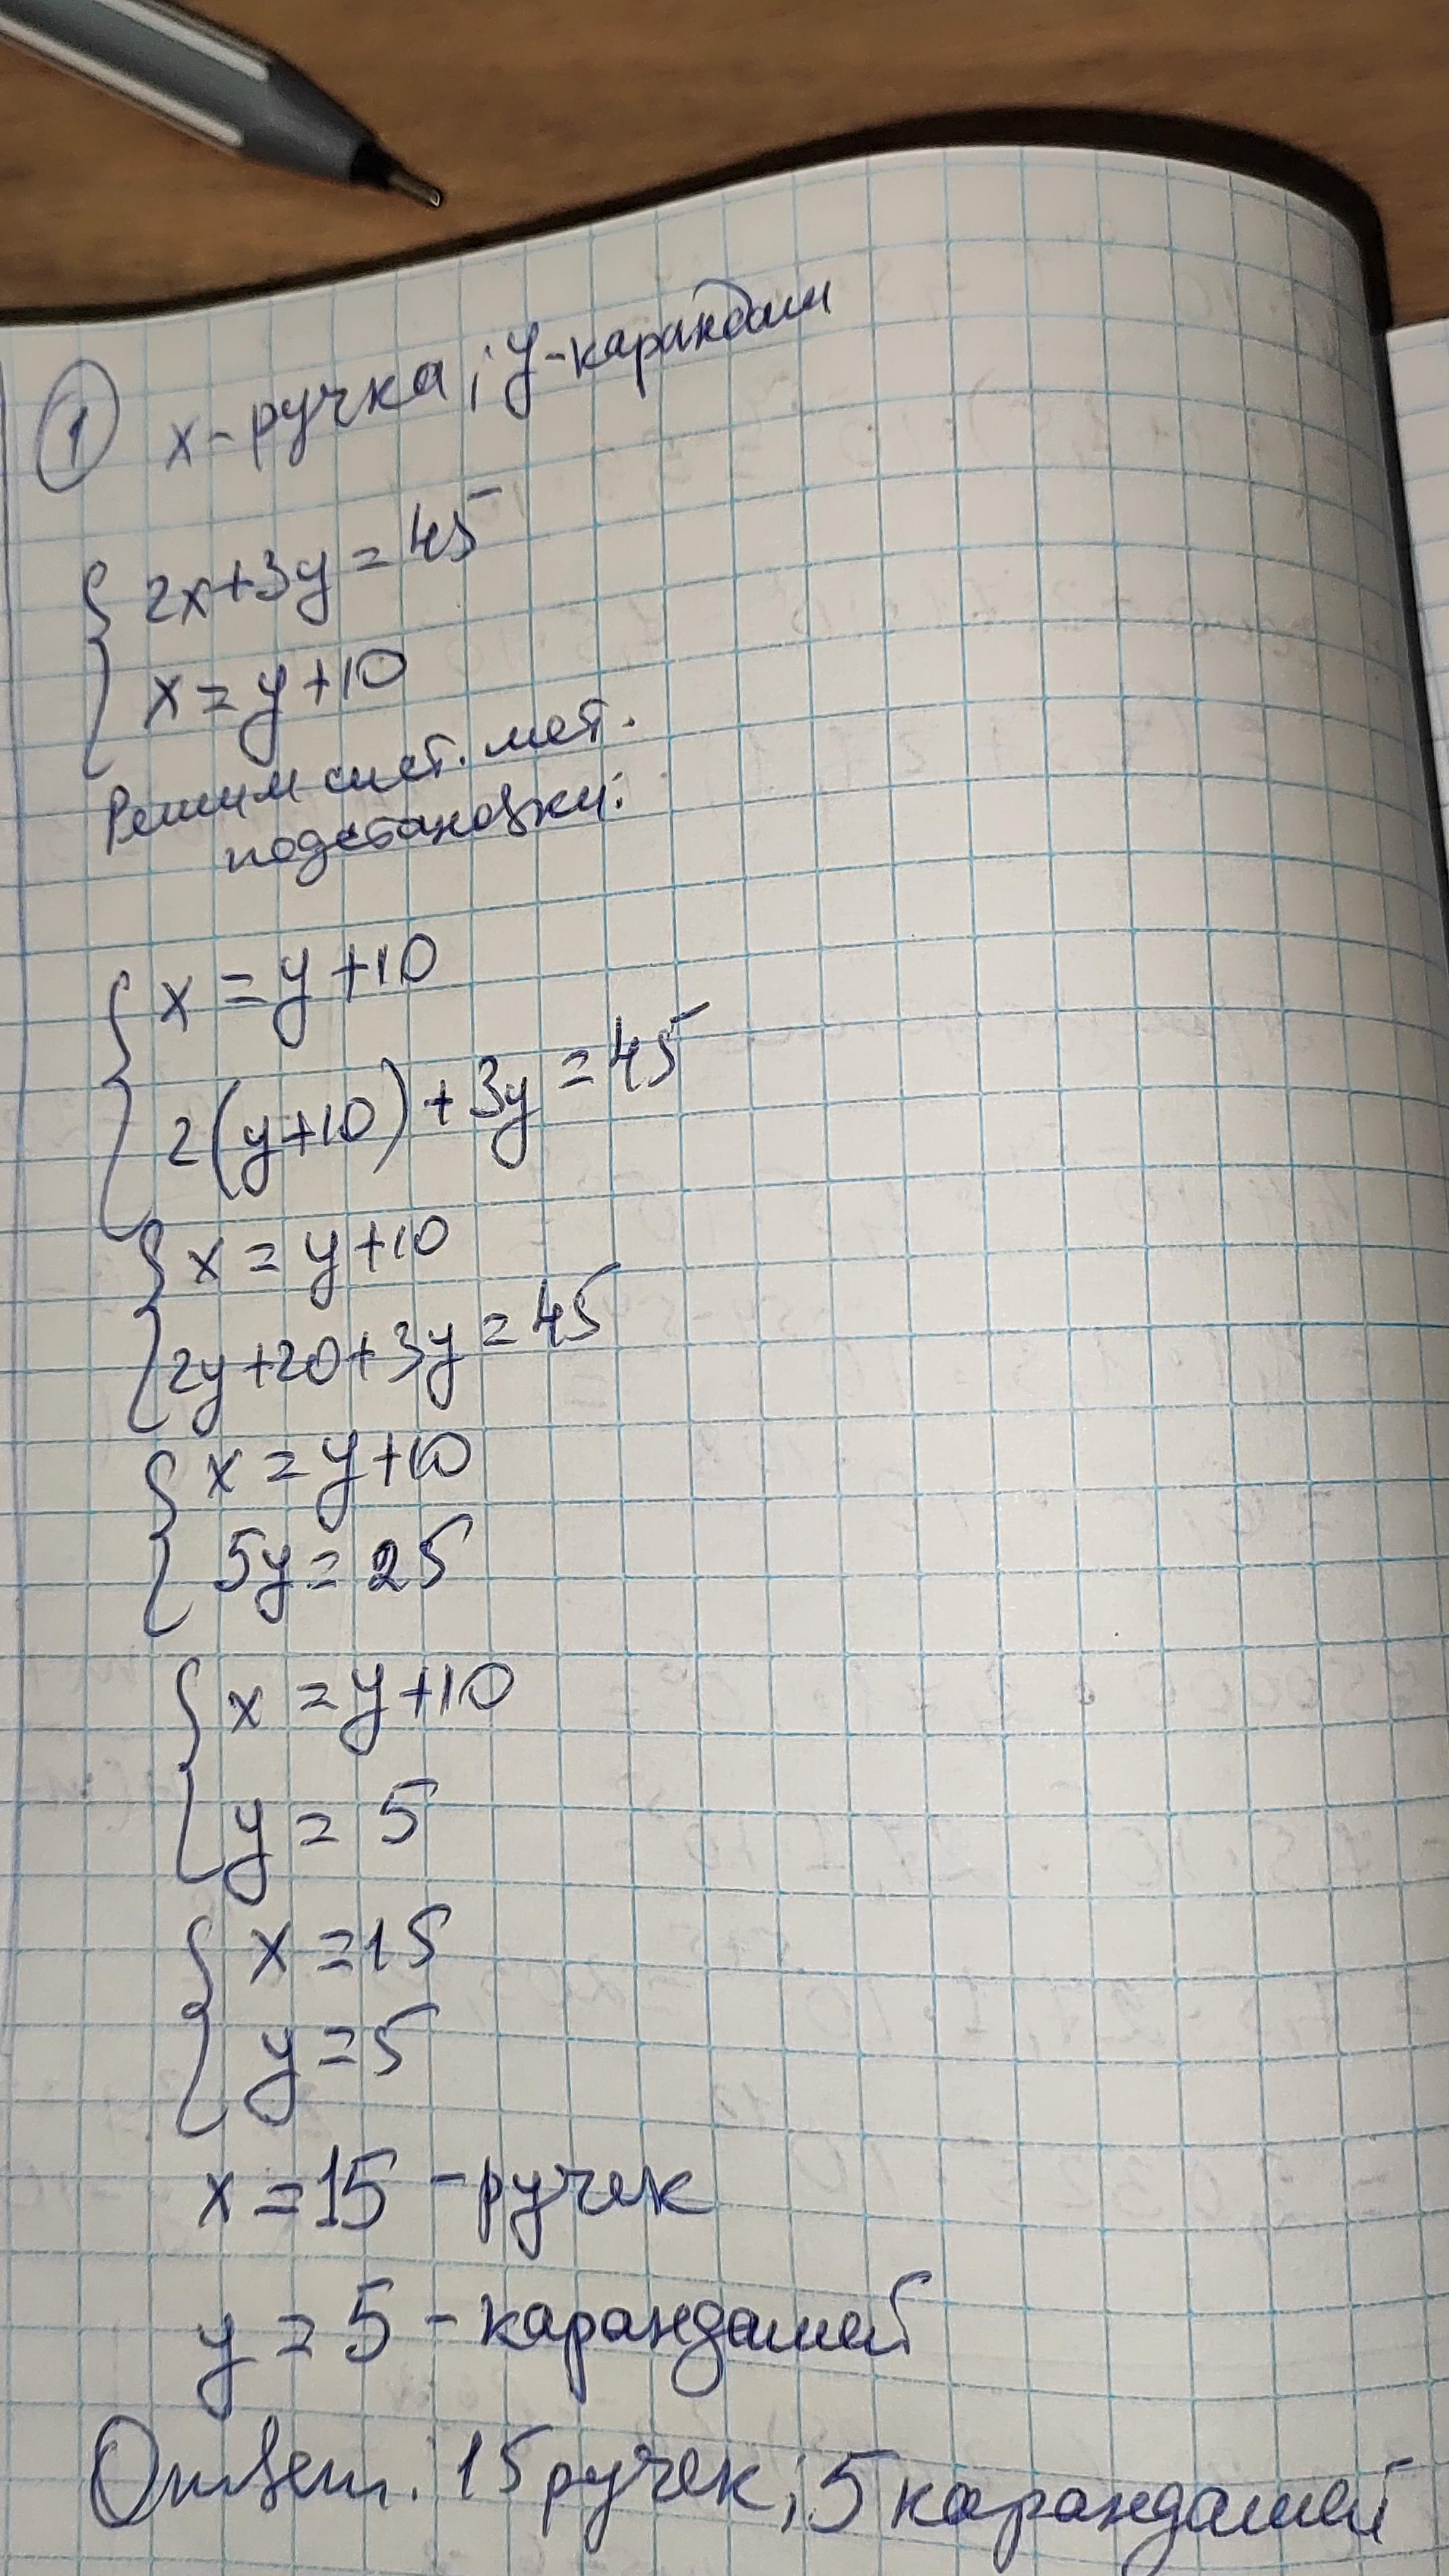 ① x - ручка ; y - карандаш
{ 2x+3y = 45
x = y+10
Решим сист. мет.
подстановки:
{ x = y+10
2(y+10) + 3y = 45
{ x = y+10
2y+20+3y = 45
{ x = y+10
5y = 25
{ x = y+10
y = 5
{ x = 15
y = 5
x = 15 - ручек
y = 5 - карандашей
Ответ. 15 ручек ; 5 карандашей